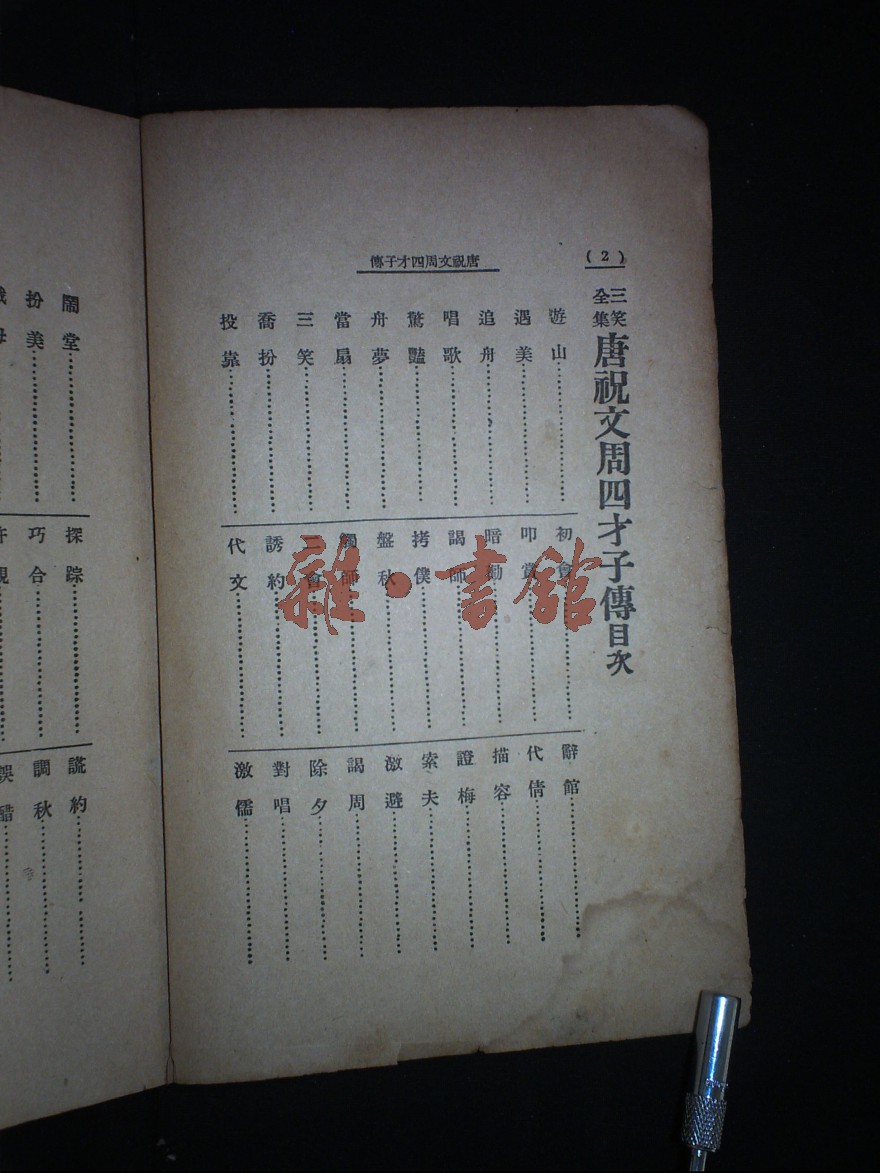 (2)
唐祝文周四才子傳
三笑全集 唐祝文周四才子傳目次
遊山
遇美
追舟
唱歌
驚豔
舟夢
當扇
三笑
喬扮
投靠
初會
叩賞
暗勸
謁師
拷僕
盤秋
二會
誘約
代文
辭館
代倩
描容
證梅
索夫
激遊
謁周
除夕
對唱
激儒
鬧堂
扮美
探踪
巧合
謊約
調秋
雜·書館